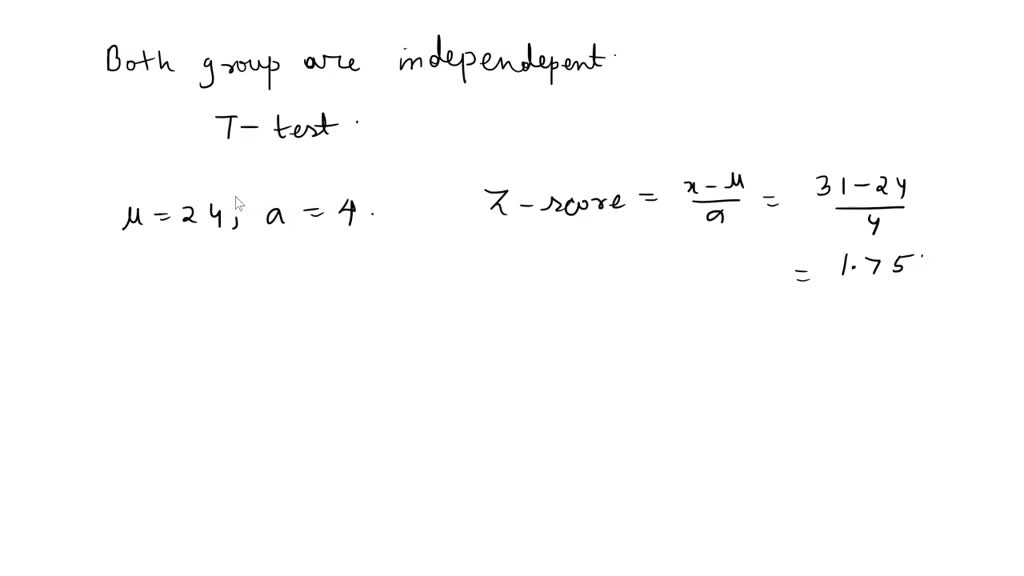 Both group are independepent.
T- test.
μ = 24, a = 4.
Z-score = \frac{x-μ}{a} = \frac{31-24}{4}
= 1.75.